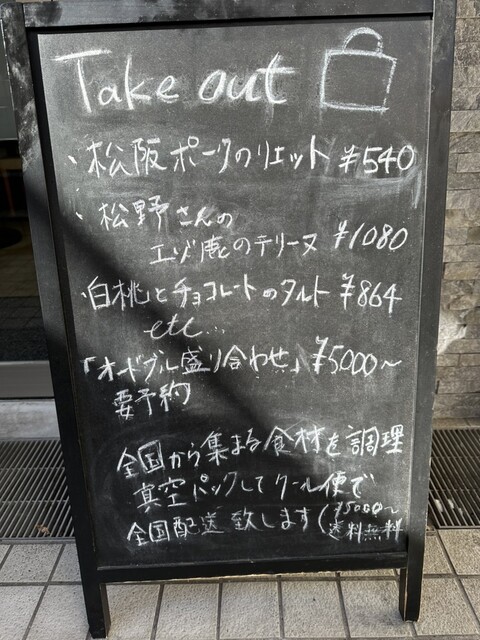 Take out
・松阪ポークのリエット ¥540
・松野さんの
エゾ鹿のテリーヌ ¥1080
・白桃とチョコレートのタルト ¥864
etc...
「オードブル盛り合わせ」¥5000〜
要予約
全国から集まる食材を調理
真空パックしてクール便で
全国配送致します(¥5000〜
送料無料